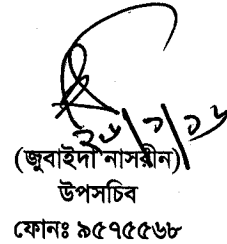 ২৬/১/১৬
(জুবাইদা নাসরীন)
উপসচিব
ফোনঃ ৯৫৭৫৫৬৮